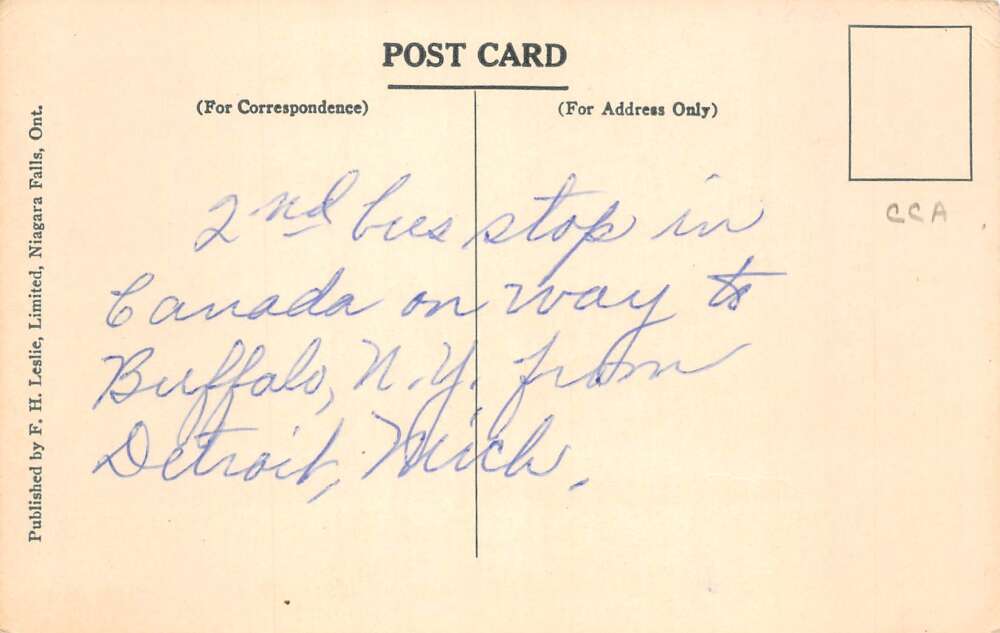 POST CARD
(For Correspondence)
(For Address Only)
CCA
2nd bus stop in
Canada on way to
Buffalo, N.Y. from
Detroit, Mich.
Published by F. H. Leslie, Limited, Niagara Falls, Ont.